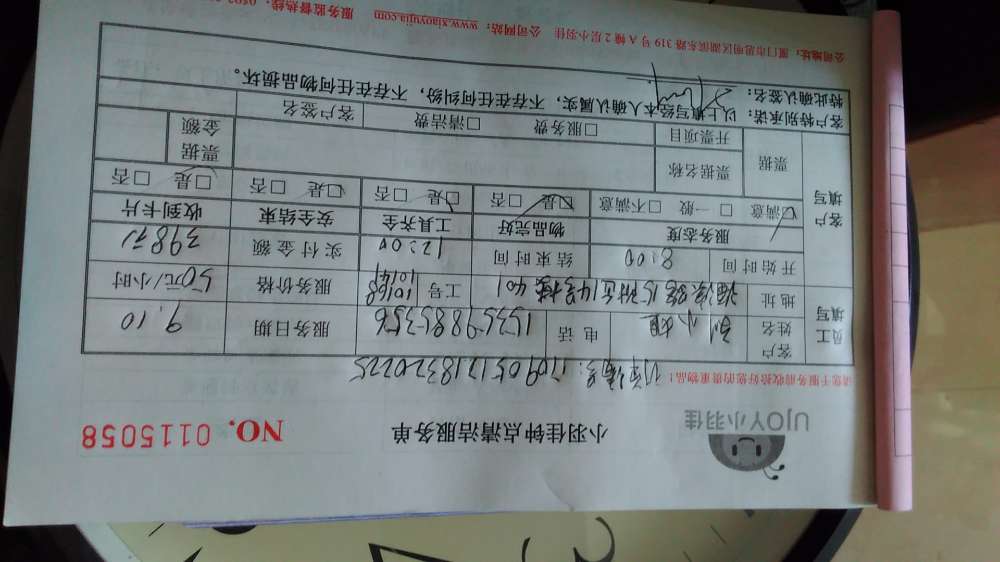 UJOY小羽佳
小羽佳钟点清洁服务单
NO. 0115058
请您于服务前收拾好您的贵重物品!
订单编号:
员工填写
客户姓名 刘小姐 电话 15359885356 服务日期 9.10
地址 工号 服务价格 50元/小时
开始时间 8:00 结束时间 12:00 实付金额 398元
客户填写
服务态度 物品完好 工具齐全 安全结束 收到卡片
□满意 □一般 □不满意 □是 □否 □是 □否 □是 □否 □是 □否
票据 票据名称 票据金额
开票项目 □服务费 □清洁费 客户签名
客户特别承诺: 以上填写经本人确认属实,不存在任何纠纷,不存在任何物品损坏。
特此确认签名:
公司地址:厦门市思明区湖滨东路319号A幢2层小羽佳 公司网站:www.xiaoyujia.com 服务监督热线: